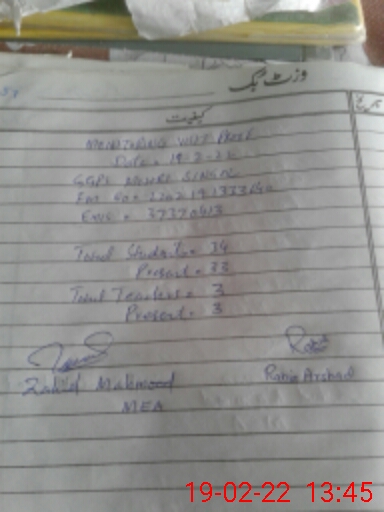 وزٹ بک
کیفیت
MONITORING VISIT PROOF
Date = 19-2-22
GGPS
EMIS = 37370413
Total Students = 34
Present = 33
Total Teachers = 3
Present = 3
Zahid Mahmood
Rabia Arshad
MEA
19-02-22 13:45